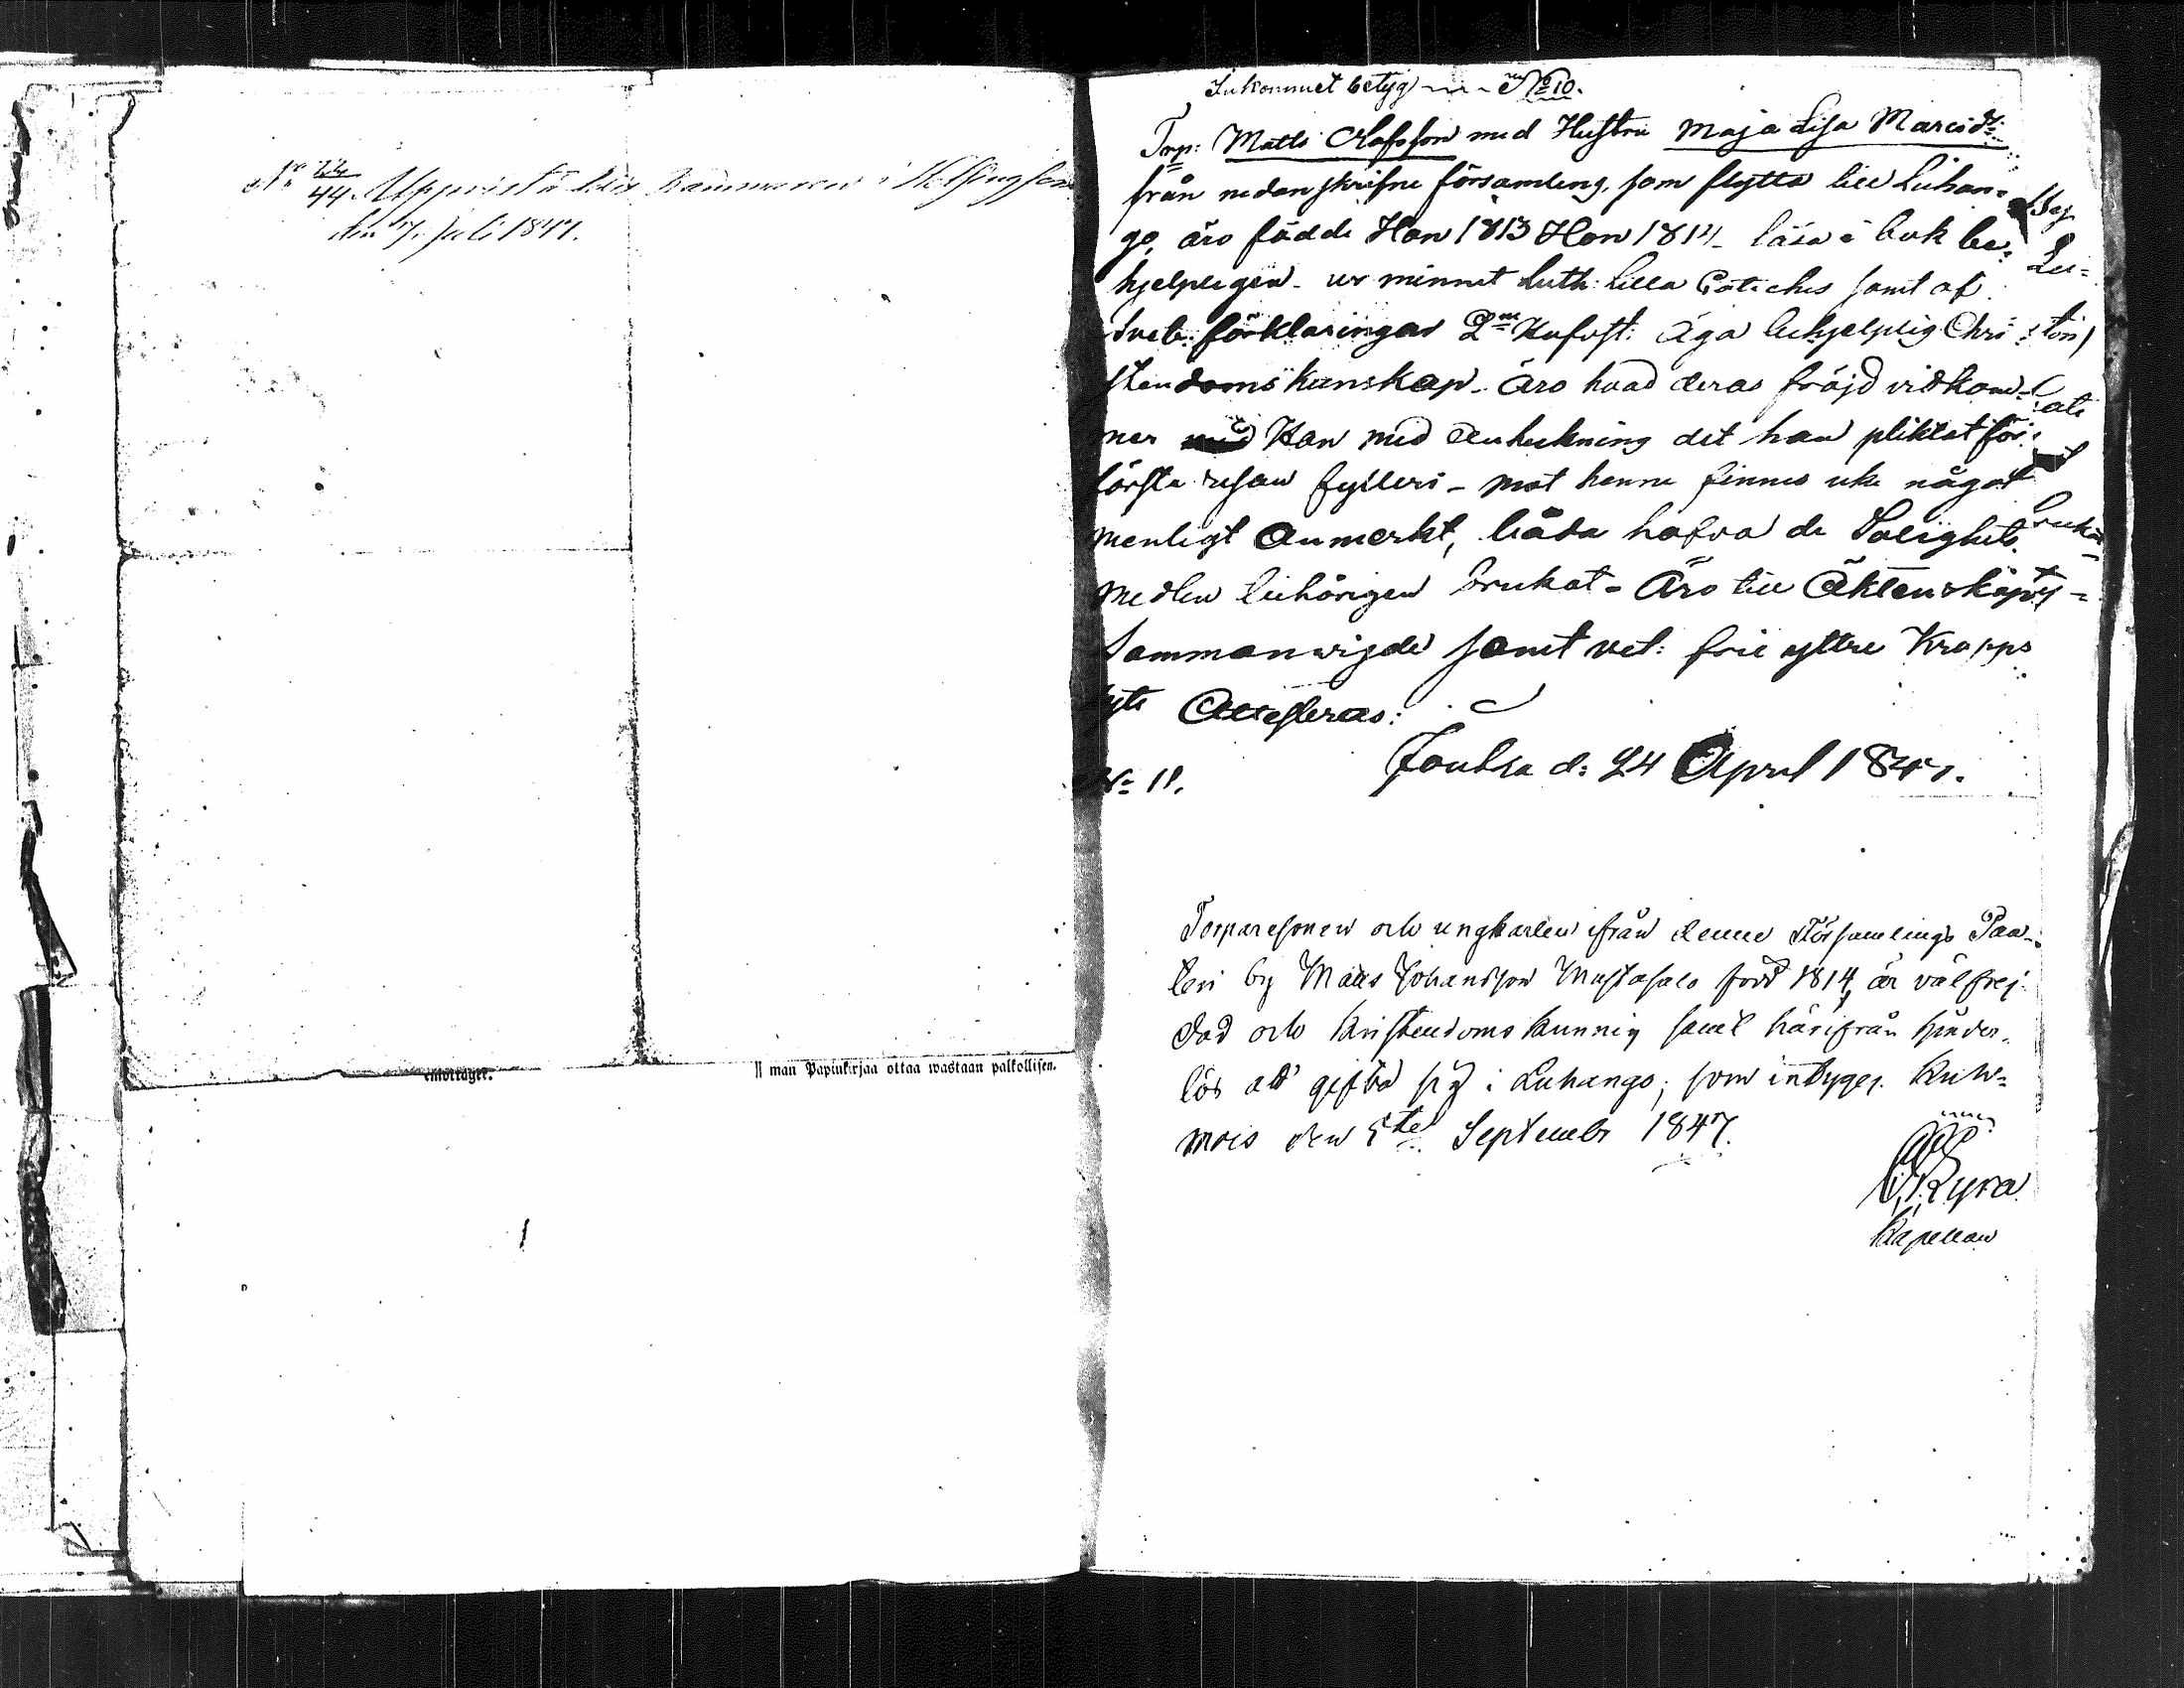 No 44. Uppvist å Läs kammaren i Helsingfors
den 7. Juli 1847.
emottaget.
man Papinkirjaa ottaa wastaan palkollisen.
Inkommet betyg No 10.
Torp: Matts Olofsson med Hustru Maja Lisa Marcidr.
från nedanskrifne församling, som flytta till Luhan=
go, äro födde Han 1813 Hon 181 läsa i bok be=
hjelpligen ur minnet Luth: Lilla Catiches samt af
Sveb: förklaringar 2 Hufvst: Äga behjelplig Chri=
stendoms kunskap. Äro hvad deras fräjd vidkom=
mer Han med anteckning det han pliktat för
första resan fylleri – mot henne finnes icke något
menligt anmerkt, båda hafva de Salighets
medlen behörigen brukat. Äro till Äktenskap
Sammanvigde samt vet: frie yttre Kropps
lyte Attesteras:
Joutsa d: 24 April 1847.
No 11.
Torparesonen och ungkarlen ifrån denne Församlings Paa-
leri by Matts Johansson Mustasalo född 1814, är välfrej-
dad och kristendomskunnig samt härifrån hinder-
lös att gifta sig i Luhango; som intygas. Kuh=
mois den 5te September 1847.
Kyra
Kapellan